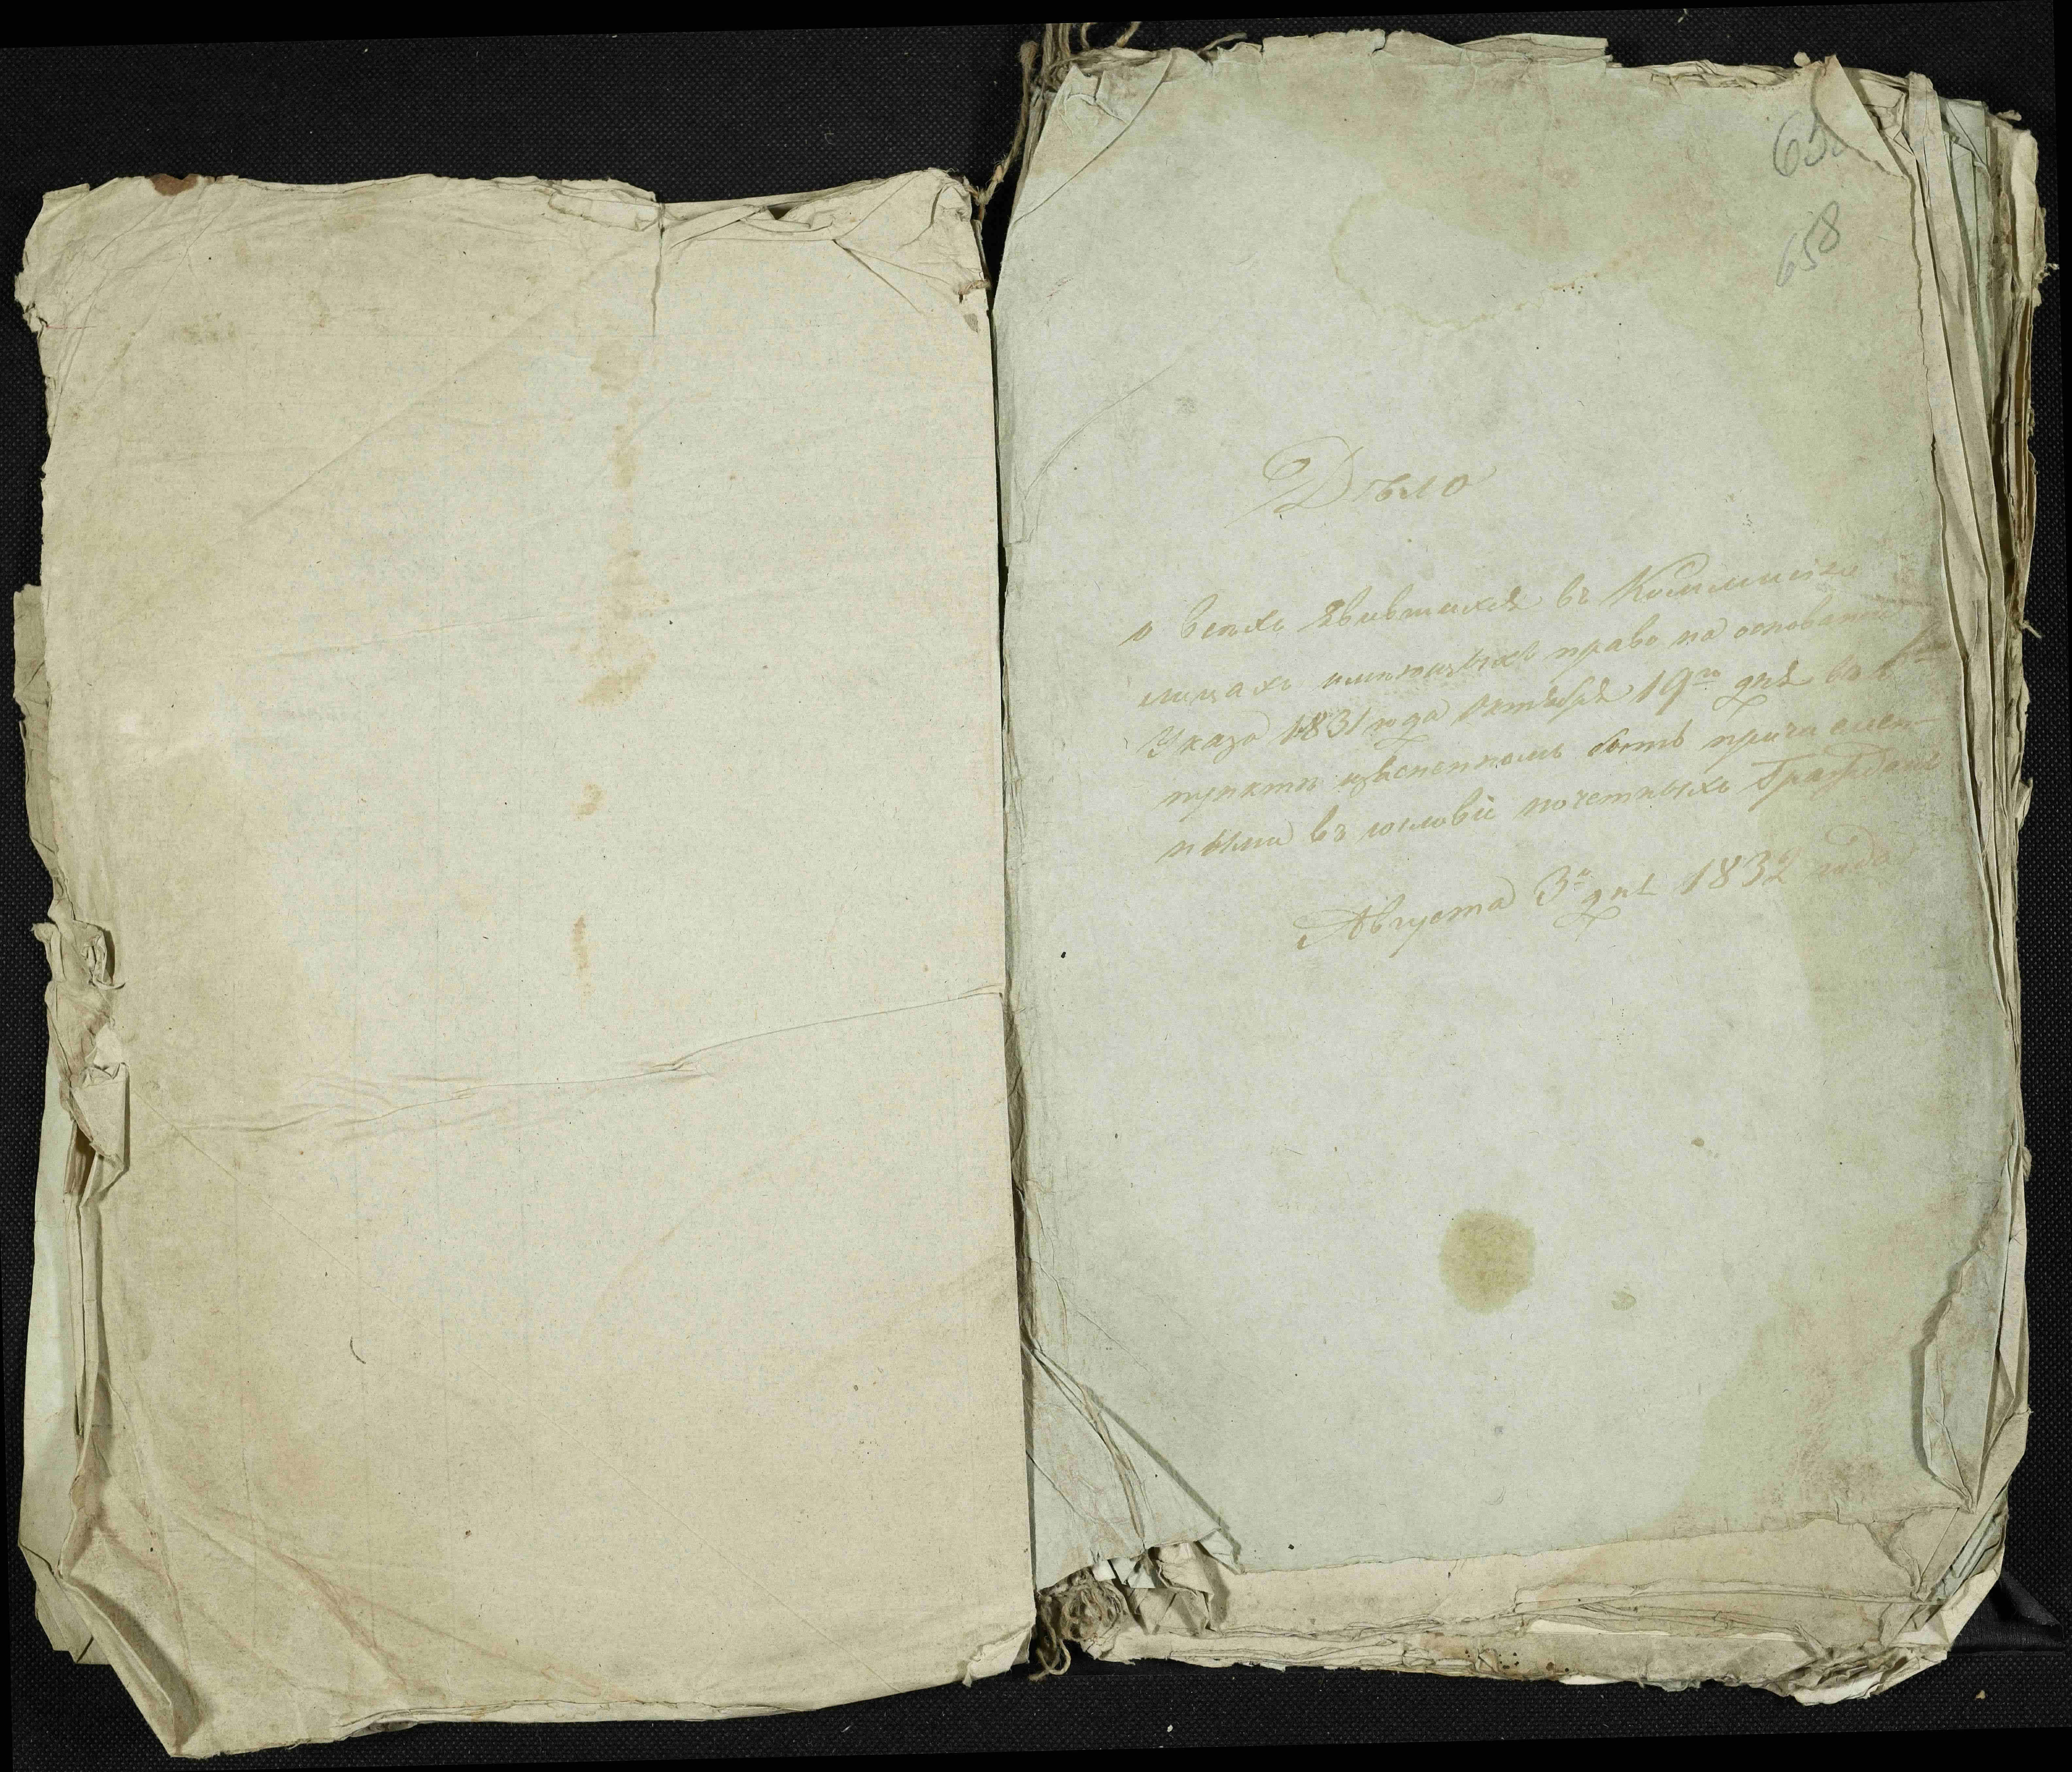 658
Дѣло
о всѣхъ явившихся въ Коммисію
лицахъ имеющихъ право на основаніи
Указа 1831 года Октября 19го дня въ
пунктѣ изъясненномъ быть причислен-
ными въ сословіе почетныхъ Гражданъ
Августа 3го дня 1832 года